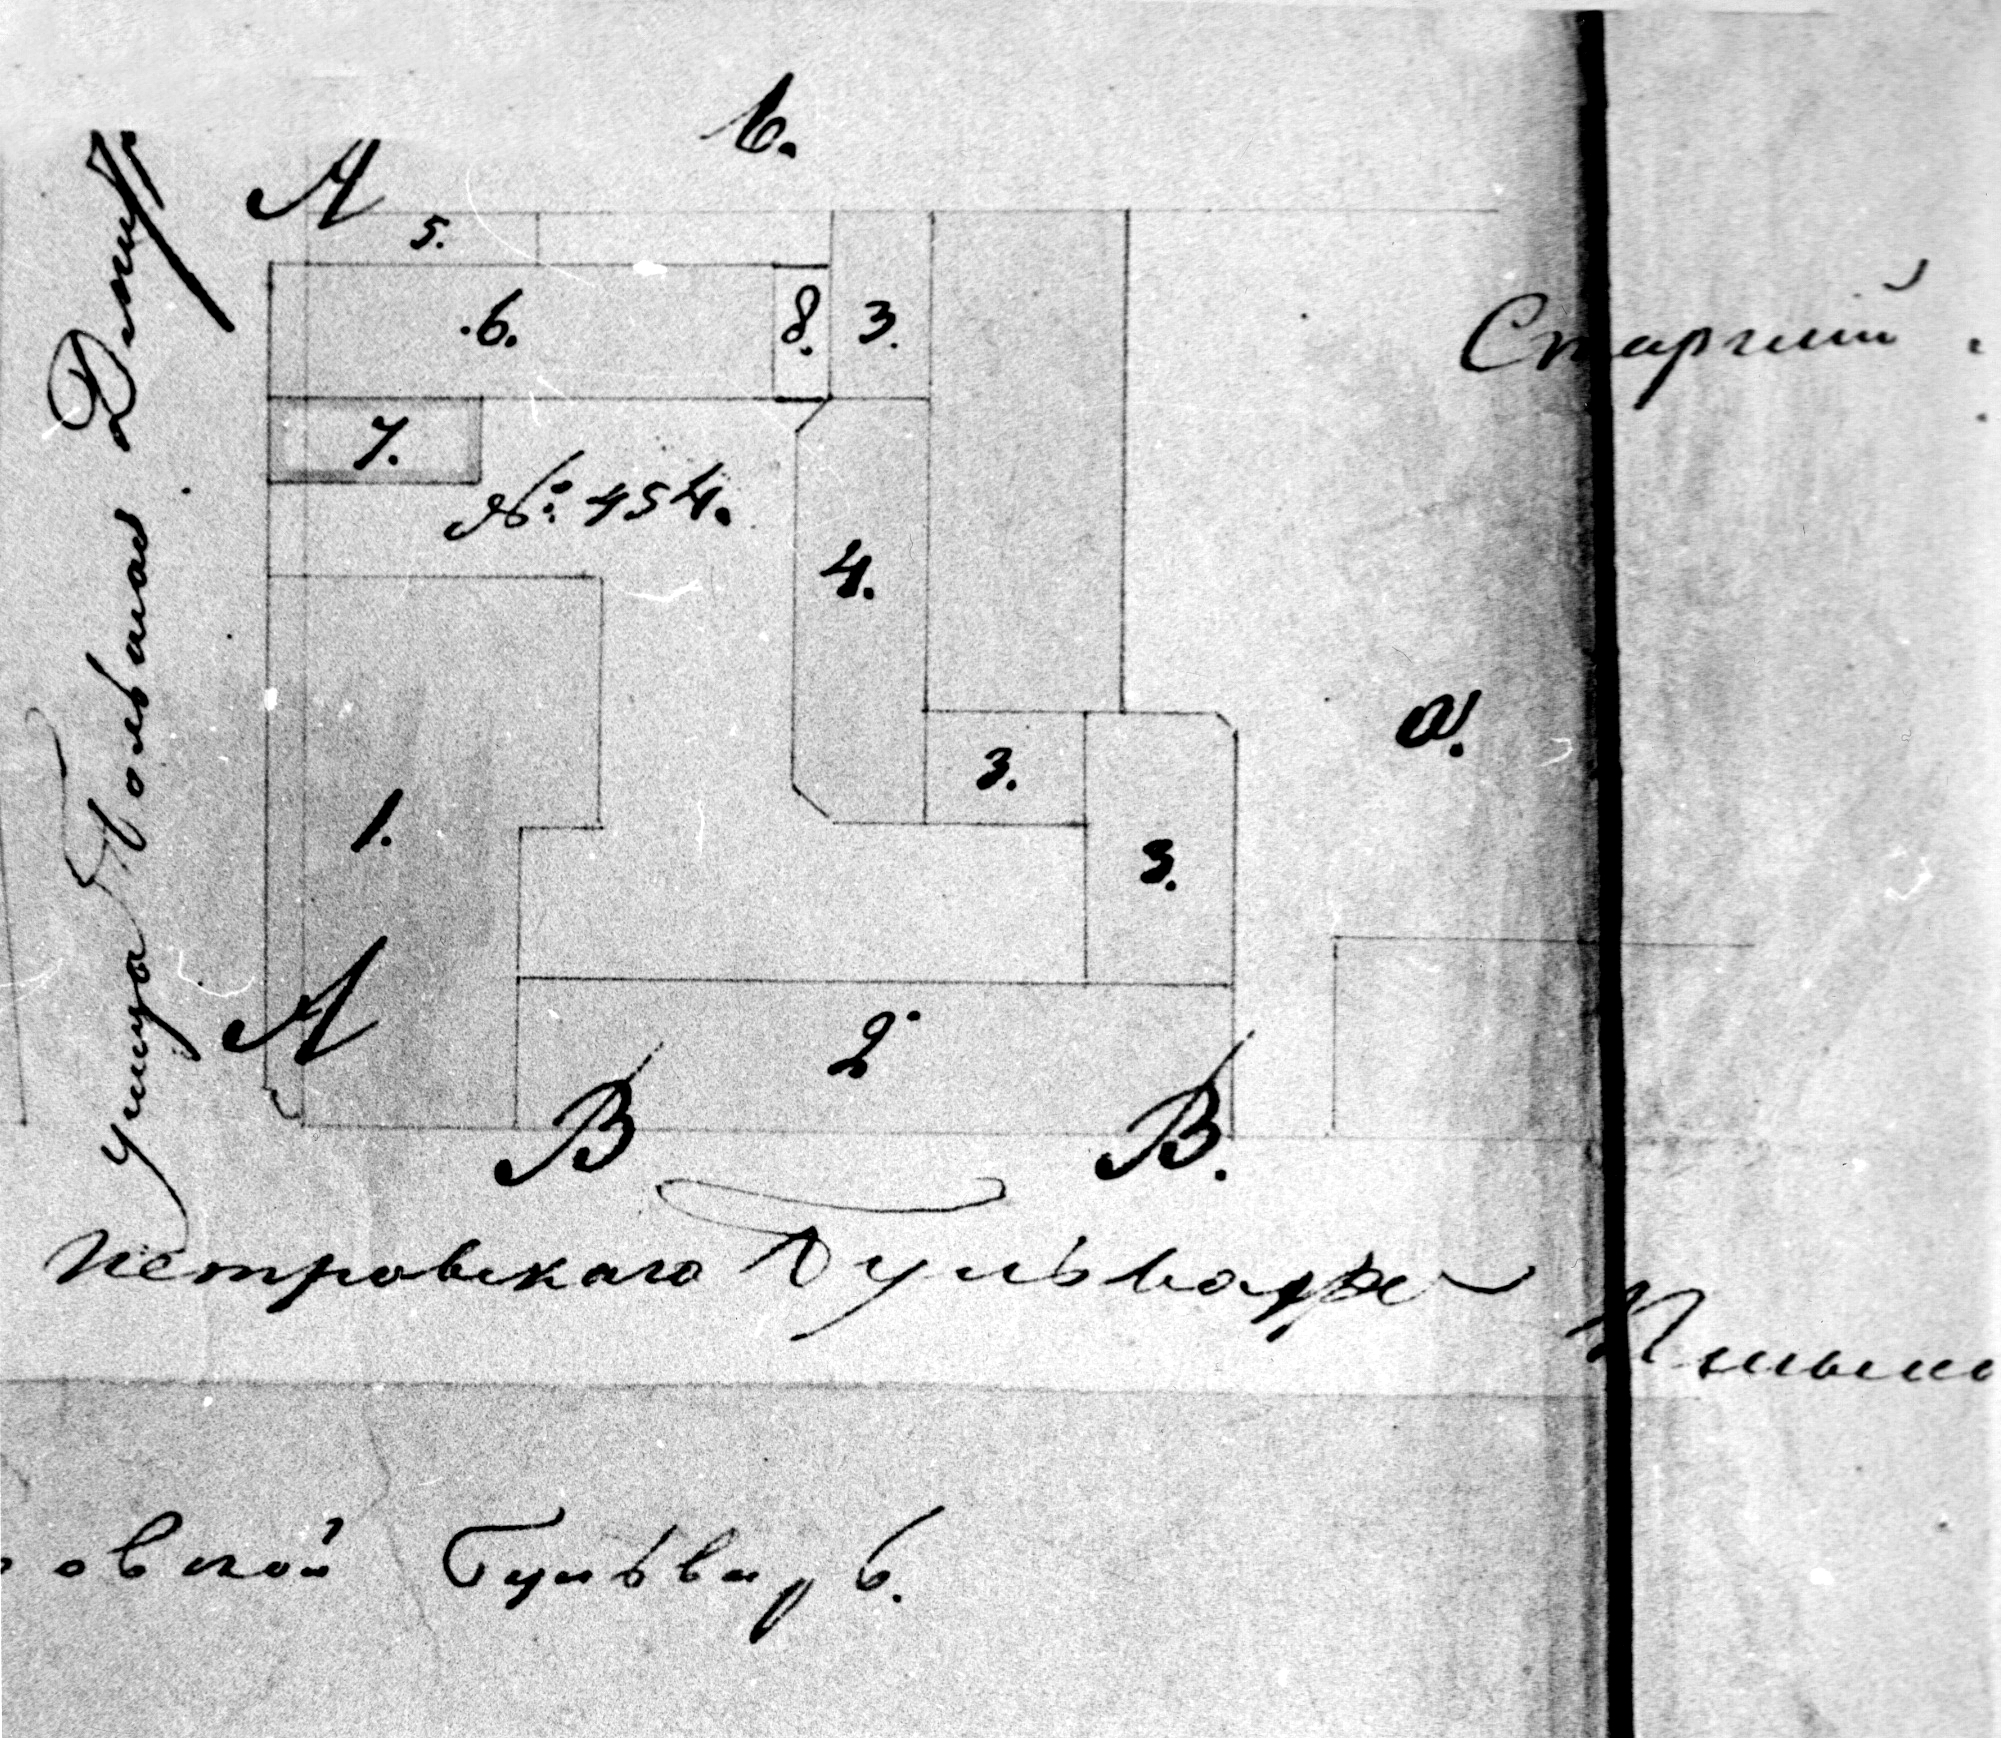 в.
А
5.
6.
8.
3.
Старший
7.
№ 454.
4.
а.
3.
1.
3.
улица Большая Дмит
А
2
В
В.
Петровскаго Бульвара
овской Бульваръ.